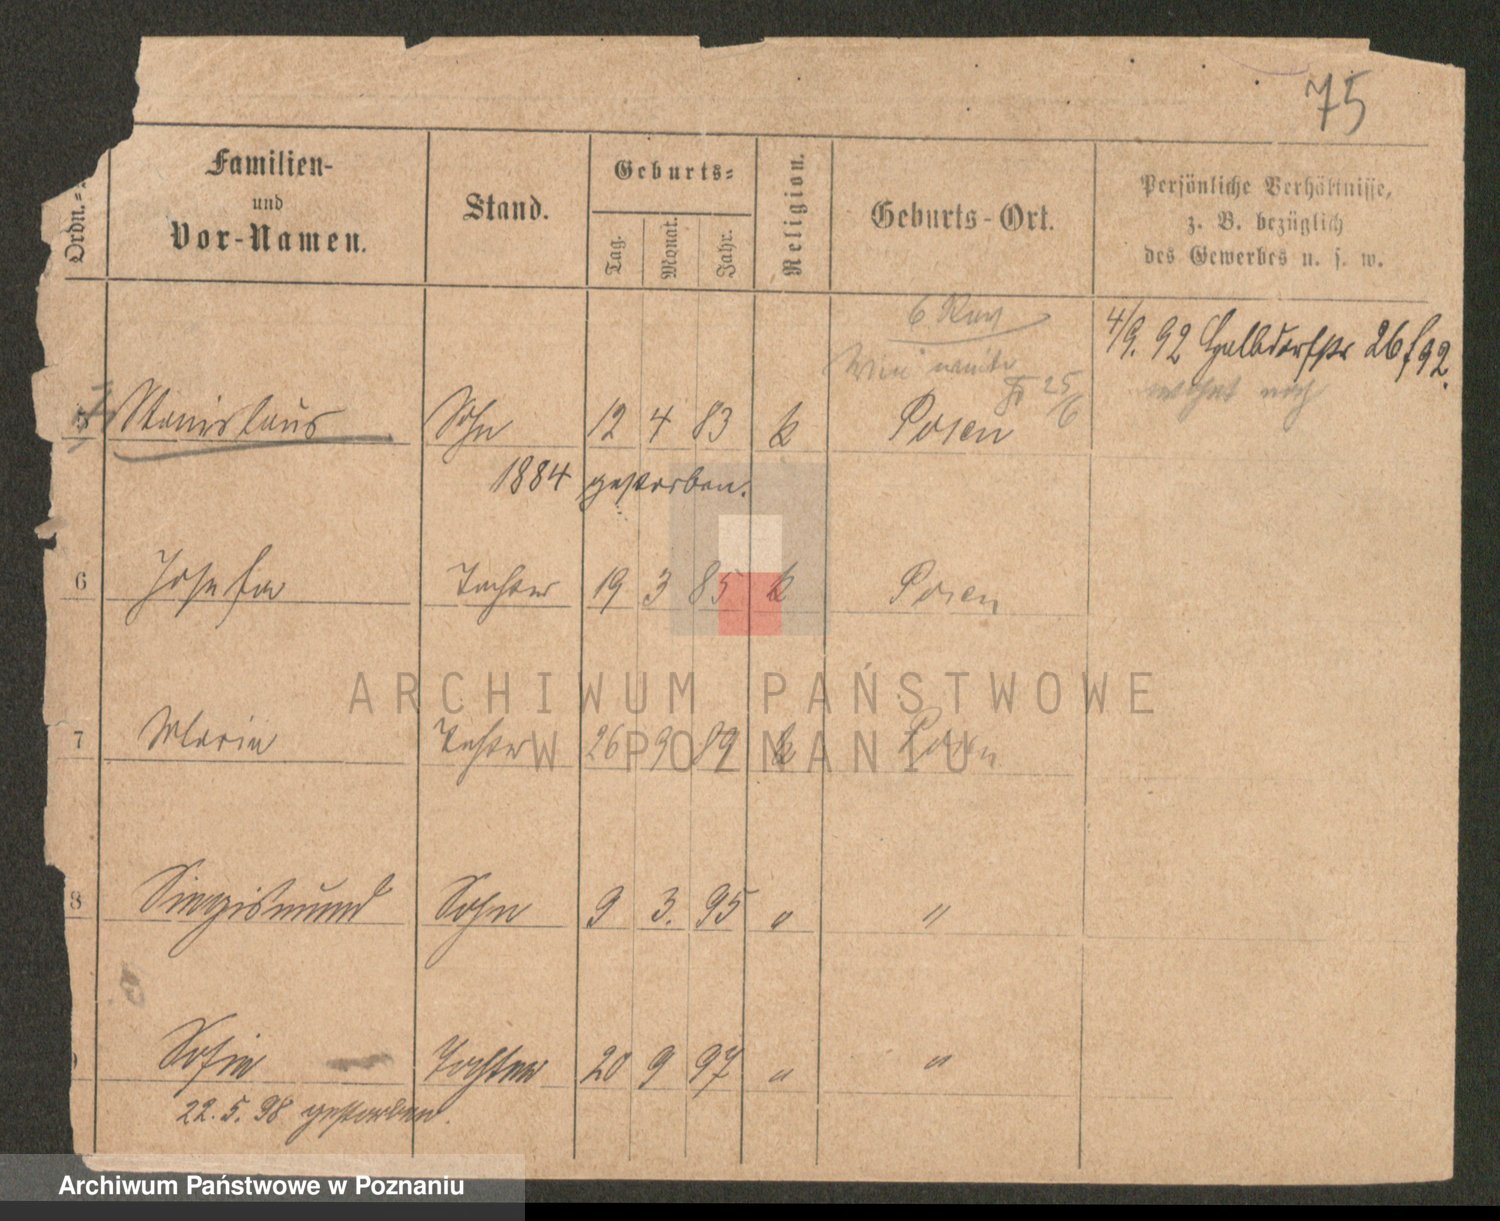 75
Ordn.=
Familien-
und
Vor-Namen.
Stand.
Geburts=
Tag.
Monat.
Jahr.
Religion.
Geburts-Ort.
Persönliche Verhältnisse,
z. B. bezüglich
des Gewerbes u. s. w.
4/9. 92 Halbdorfstr 26 f 92.
wohnt noch
25/6
5 Stanislaus Sohn 12 4 83 k Posen
1884 gestorben.
6 Josefa Tochter 19 3 85 k Posen
ARCHIWUM PAŃSTWOWE
W POZNANIU
7 Maria Tochter 26 9 89 k Posen
8 Siegismund Sohn 9 3. 95 " "
Sofie Tochter 20 9 97 " "
22. 5. 98 gestorben.
Archiwum Państwowe w Poznaniu